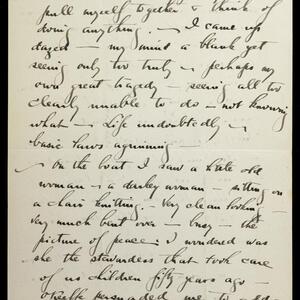 pull myself together & think of
doing anything. — I came up
dazed — my mind a blank yet
seeing only too truly — perhaps my
own great tragedy — seeing all too
clearly unable to do — not knowing
what — Life undoubtedly —
basic laws
— On the boat I saw a little old
woman — a darkey woman — sitting on
a chair knitting. Very clean looking —
very much bent over — busy — the
picture of peace. I wondered was
she the stewardess that took care
of us children fifty years ago —
O'Keeffe persuaded me to